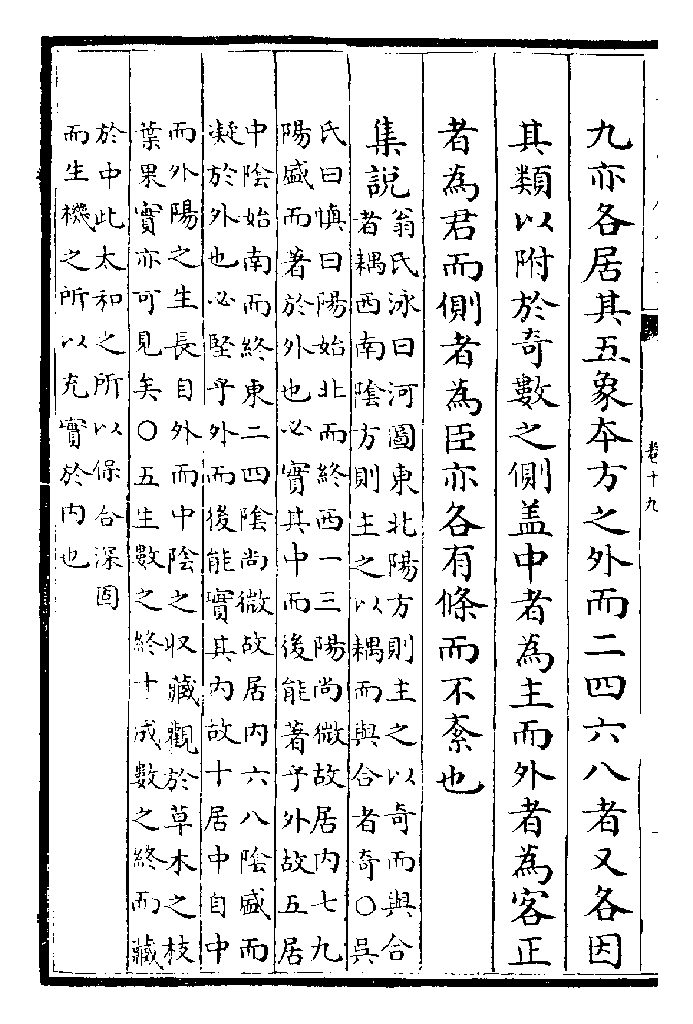 九亦各居其五象本方之外而二四六八者又各因
其類以附於奇數之側蓋中者為主而外者為客正
者為君而側者為臣亦各有條而不紊也
集說
翁氏泳曰河圖東北陽方則主之以奇而與合
者耦西南陰方則主之以耦而與合者奇○吳
氏曰慎曰陽始北而終西一三陽尚微故居内七九
陽盛而著於外也必實其中而後能著乎外故五居
中陰始南而終東二四陰尚微故居内六八陰盛而
凝於外也必堅乎外而後能實其内故十居中自中
而外陽之生長自外而中陰之收藏觀於草木之枝
葉果實亦可見矣○五生數之終十成數之終而藏
於中此太和之所以保合深固
而生機之所以充實於内也
卷十九